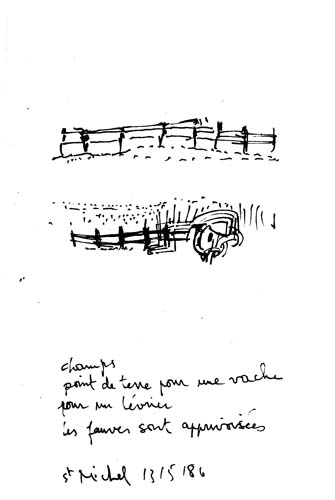 champs
point de terre pour une vache
pour un lévrier
les fauves sont apprivoisées
St Michel 13/5/86